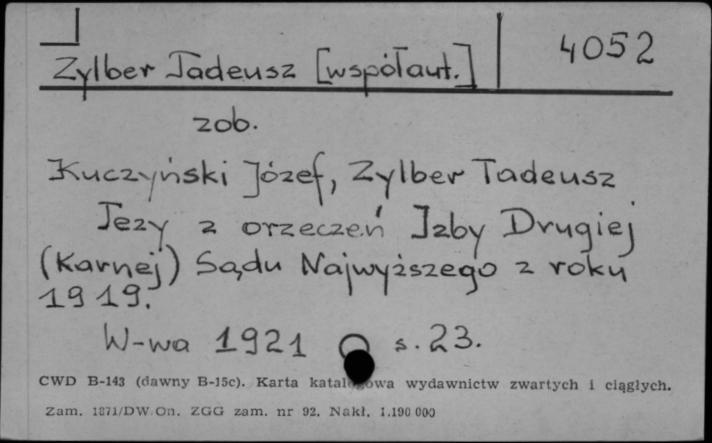 Zylber Tadeusz [współaut.] 4052
zob.
Kuczyński Józef, Zylber Tadeusz
Tezy z orzeczeń Izby Drugiej
(Karnej) Sądu Najwyższego z roku
1919.
W-wa 1921 s. 23.
CWD B-143 (dawny B-15c). Karta katalogowa wydawnictw zwartych i ciągłych.
Zam. 1871/DW/On. ZGG zam. nr 92. Nakł. 1.190 000